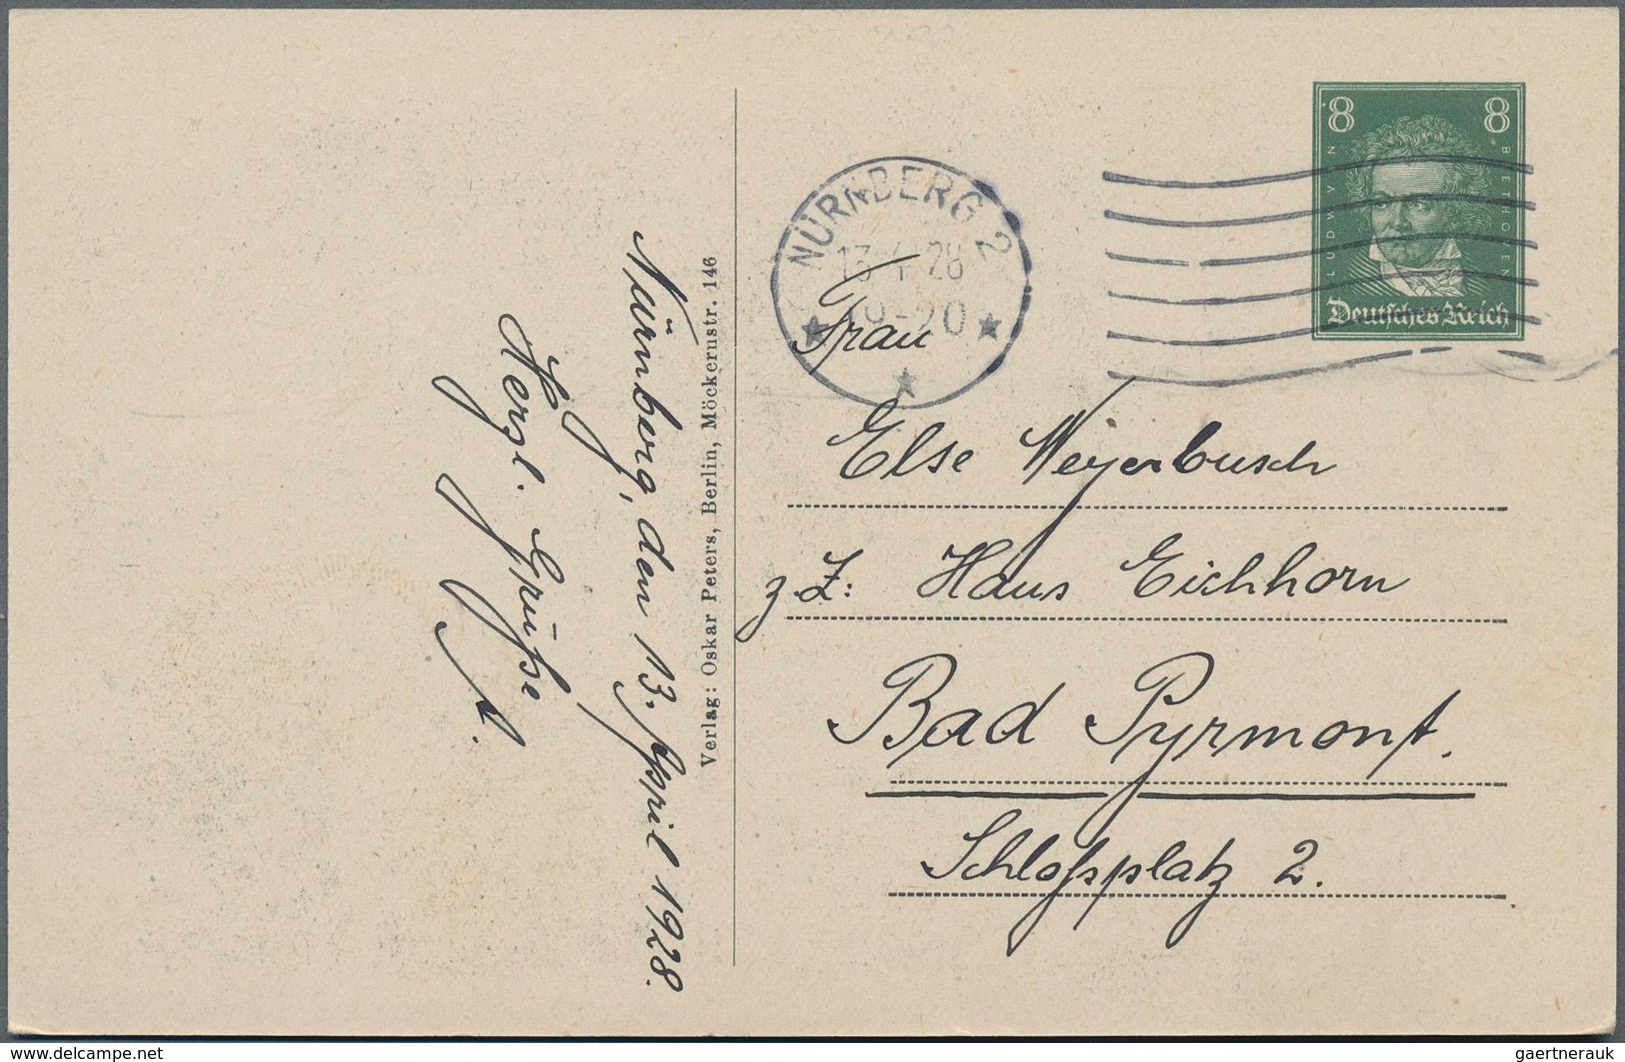 8 8
LUDWIG V. BEETHOVEN
Deutsches Reich
NÜRNBERG 2
13.4.28
-20
Frau
Else Weyerbusch
z. Z: Haus Eichhorn
Bad Pyrmont.
Schloßplatz 2.
Verlag: Oskar Peters, Berlin, Möckernstr. 146
Nürnberg, den 13. April 1928.
Herzl. Grüße
A.
www.delcampe.net
gaertnerauk